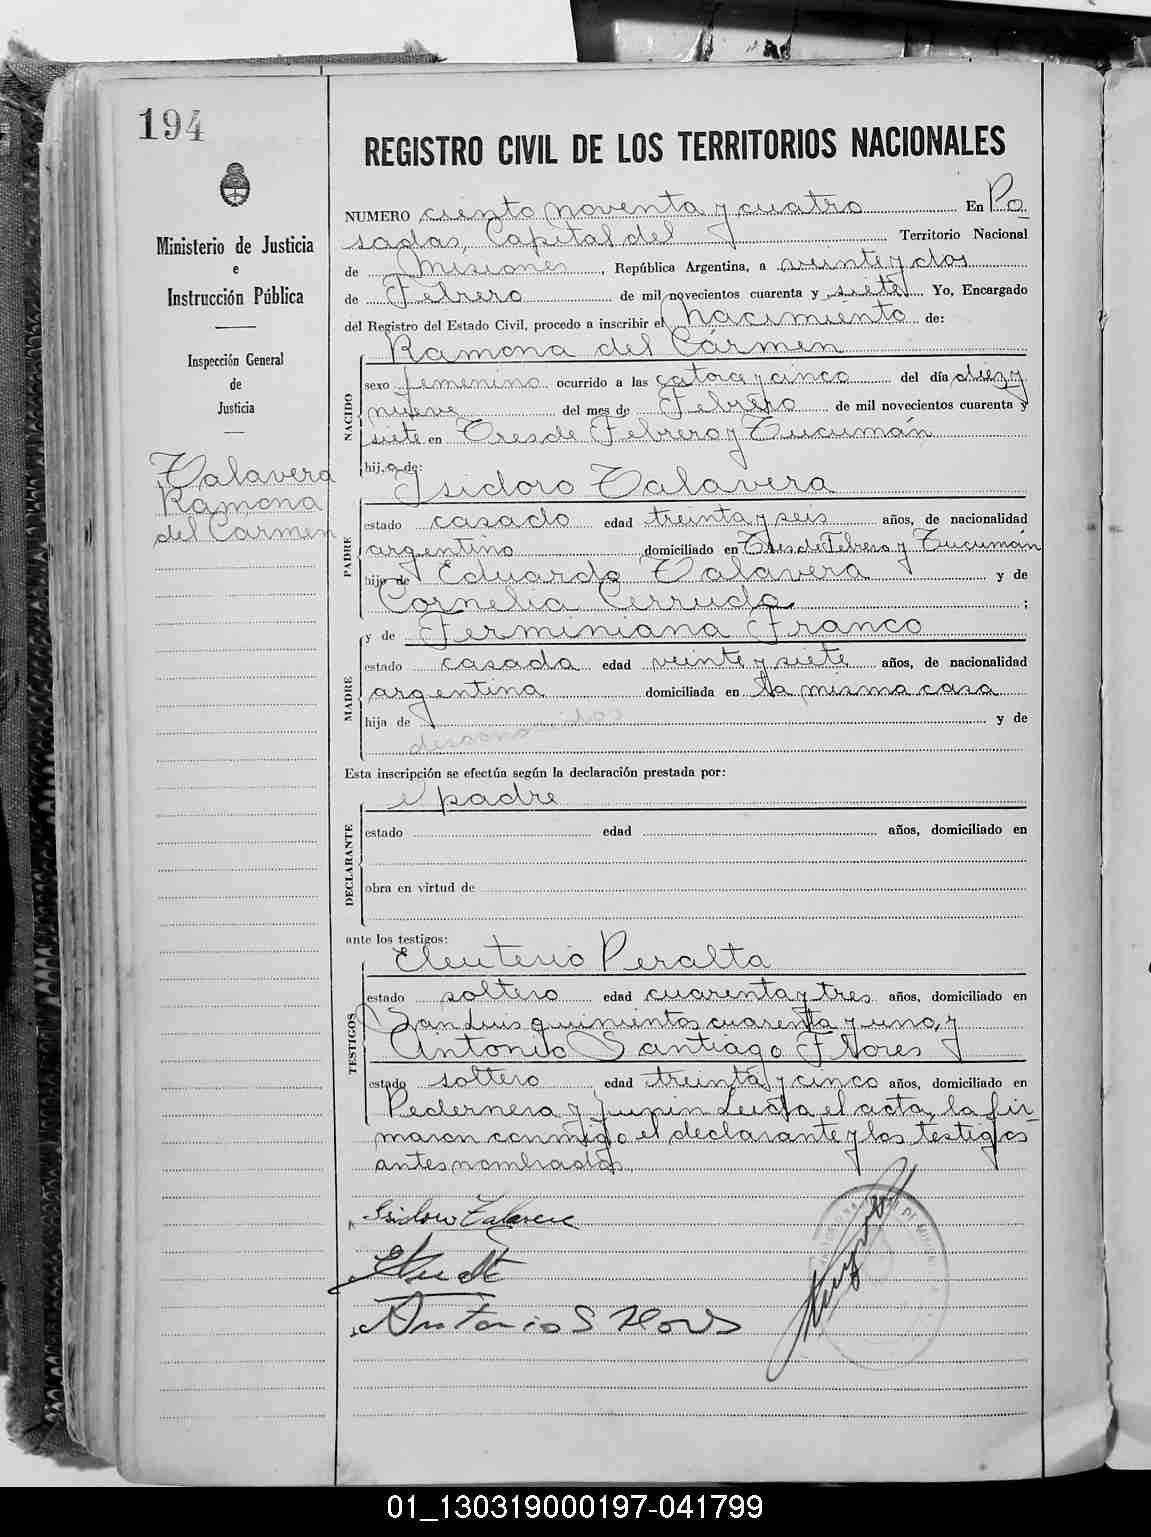 194
REGISTRO CIVIL DE LOS TERRITORIOS NACIONALES
Ministerio de Justicia
e
Instrucción Pública
Inspección General
de
Justicia
Talavera
Ramona
del Carmen
NUMERO ciento noventa y cuatro En Po
sadas, Capital del Territorio Nacional
de Misiones, República Argentina, a veinte y dos
de Febrero de mil novecientos cuarenta y siete Yo, Encargado
del Registro del Estado Civil, procedo a inscribir el nacimiento de:
Ramona del Cármen
NACIDO
sexo femenino ocurrido a las catorce y cinco del día diez y
nueve del mes de Febrero de mil novecientos cuarenta y
siete en Tres de Febrero y Tucumán
hij a de:
Isidoro Talavera
PADRE
estado casado edad treinta y seis años, de nacionalidad
argentino domiciliado en Tres de Febrero y Tucumán
hijo de Eduardo Talavera y de
Cornelia Cerruda ;
y de Ferminiana Franco
MADRE
estado casada edad veinte y siete años, de nacionalidad
argentina domiciliada en la misma casa
hija de y de
Esta inscripción se efectúa según la declaración prestada por:
el padre
DECLARANTE
estado edad años, domiciliado en
obra en virtud de
ante los testigos:
Eleuterio Peralta
TESTIGOS
estado soltero edad cuarenta y tres años, domiciliado en
San Luis quinientos cuarenta y uno, y
Antonio Santiago Flores
estado soltero edad treinta y cinco años, domiciliado en
Pedernera y Junin Leida el acta, la fir-
maron conmigo el declarante y los testigos
antes nombrados.
Isidoro Talavera
Antonio S Flores
01_130319000197-041799